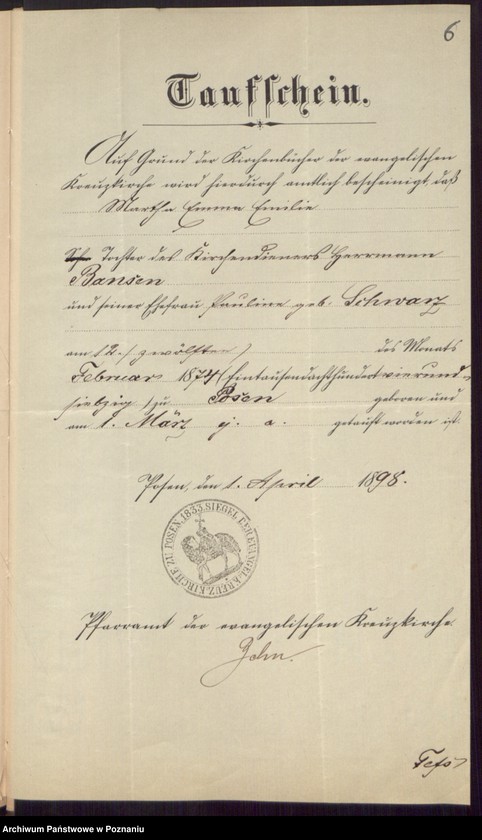 6
Taufschein.
Auf Grund der Kirchenbücher der evangelischen
Kreuzkirche wird hierdurch amtlich bescheinigt, daß
Martha Emma Emilie
Tochter des Kirchendieners Herrmann
Bansen
und seiner Ehefrau Pauline geb. Schwarz
am 12. (zwölften) des Monats
Februar 1874 (Eintausendachthundertvierund-
siebzig) zu Posen geboren und
am 1. März ej. a. getauft worden ist.
Posen, den 1. April 1898.
SIEGEL DER EVANGEL. KREUZ KIRCHE ZU POSEN. 1833.
Pfarramt der evangelischen Kreuzkirche.
Archiwum Państwowe w Poznaniu